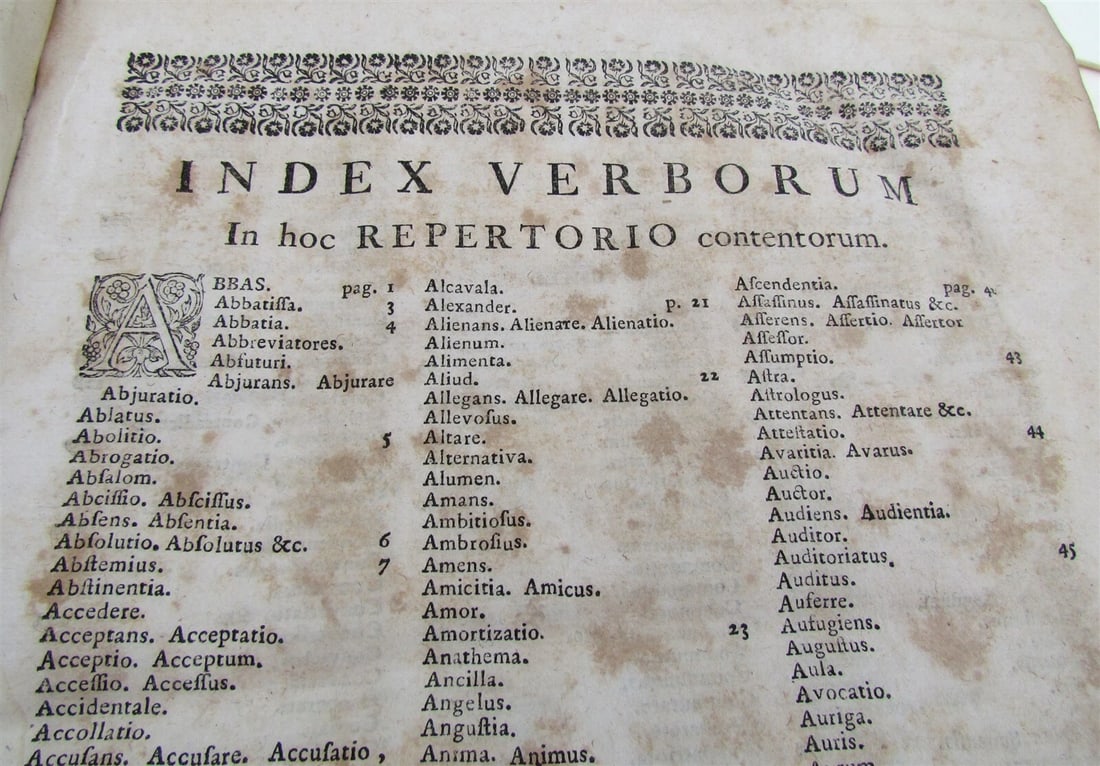 INDEX VERBORUM
In hoc REPERTORIO contentorum.
ABBAS. pag. 1
Abbatiſſa. 3
Abbatia. 4
Abbreviatores.
Abfuturi.
Abjurans. Abjurare
Abjuratio.
Ablatus.
Abolitio. 5
Abrogatio.
Abſalom.
Abciſſio. Abſciſſus.
Abſens. Abſentia.
Abſolutio. Abſolutus &c. 6
Abſtemius. 7
Abſtinentia.
Accedere.
Acceptans. Acceptatio.
Acceptio. Acceptum.
Acceſſio. Acceſſus.
Accidentale.
Accollatio.
Accuſans. Accuſare. Accuſatio,
Alcavala.
Alexander. p. 21
Alienans. Alienare. Alienatio.
Alienum.
Alimenta.
Aliud. 22
Allegans. Allegare. Allegatio.
Allevoſus.
Altare.
Alternativa.
Alumen.
Amans.
Ambitioſus.
Ambroſius.
Amens.
Amicitia. Amicus.
Amor.
Amortizatio. 23
Anathema.
Ancilla.
Angelus.
Anguſtia.
Anima. Animus.
Aſcendentia. pag.
Aſſaſſinus. Aſſaſſinatus &c.
Aſſerens. Aſſertio. Aſſertor
Aſſeſſor.
Aſſumptio. 43
Aſtra.
Aſtrologus.
Attentans. Attentare &c.
Atteſtatio. 44
Avaritia. Avarus.
Auctio.
Auctor.
Audiens. Audientia.
Auditor.
Auditoriatus. 45
Auditus.
Auferre.
Aufugiens.
Auguſtus.
Aula.
Avocatio.
Auriga.
Auris.